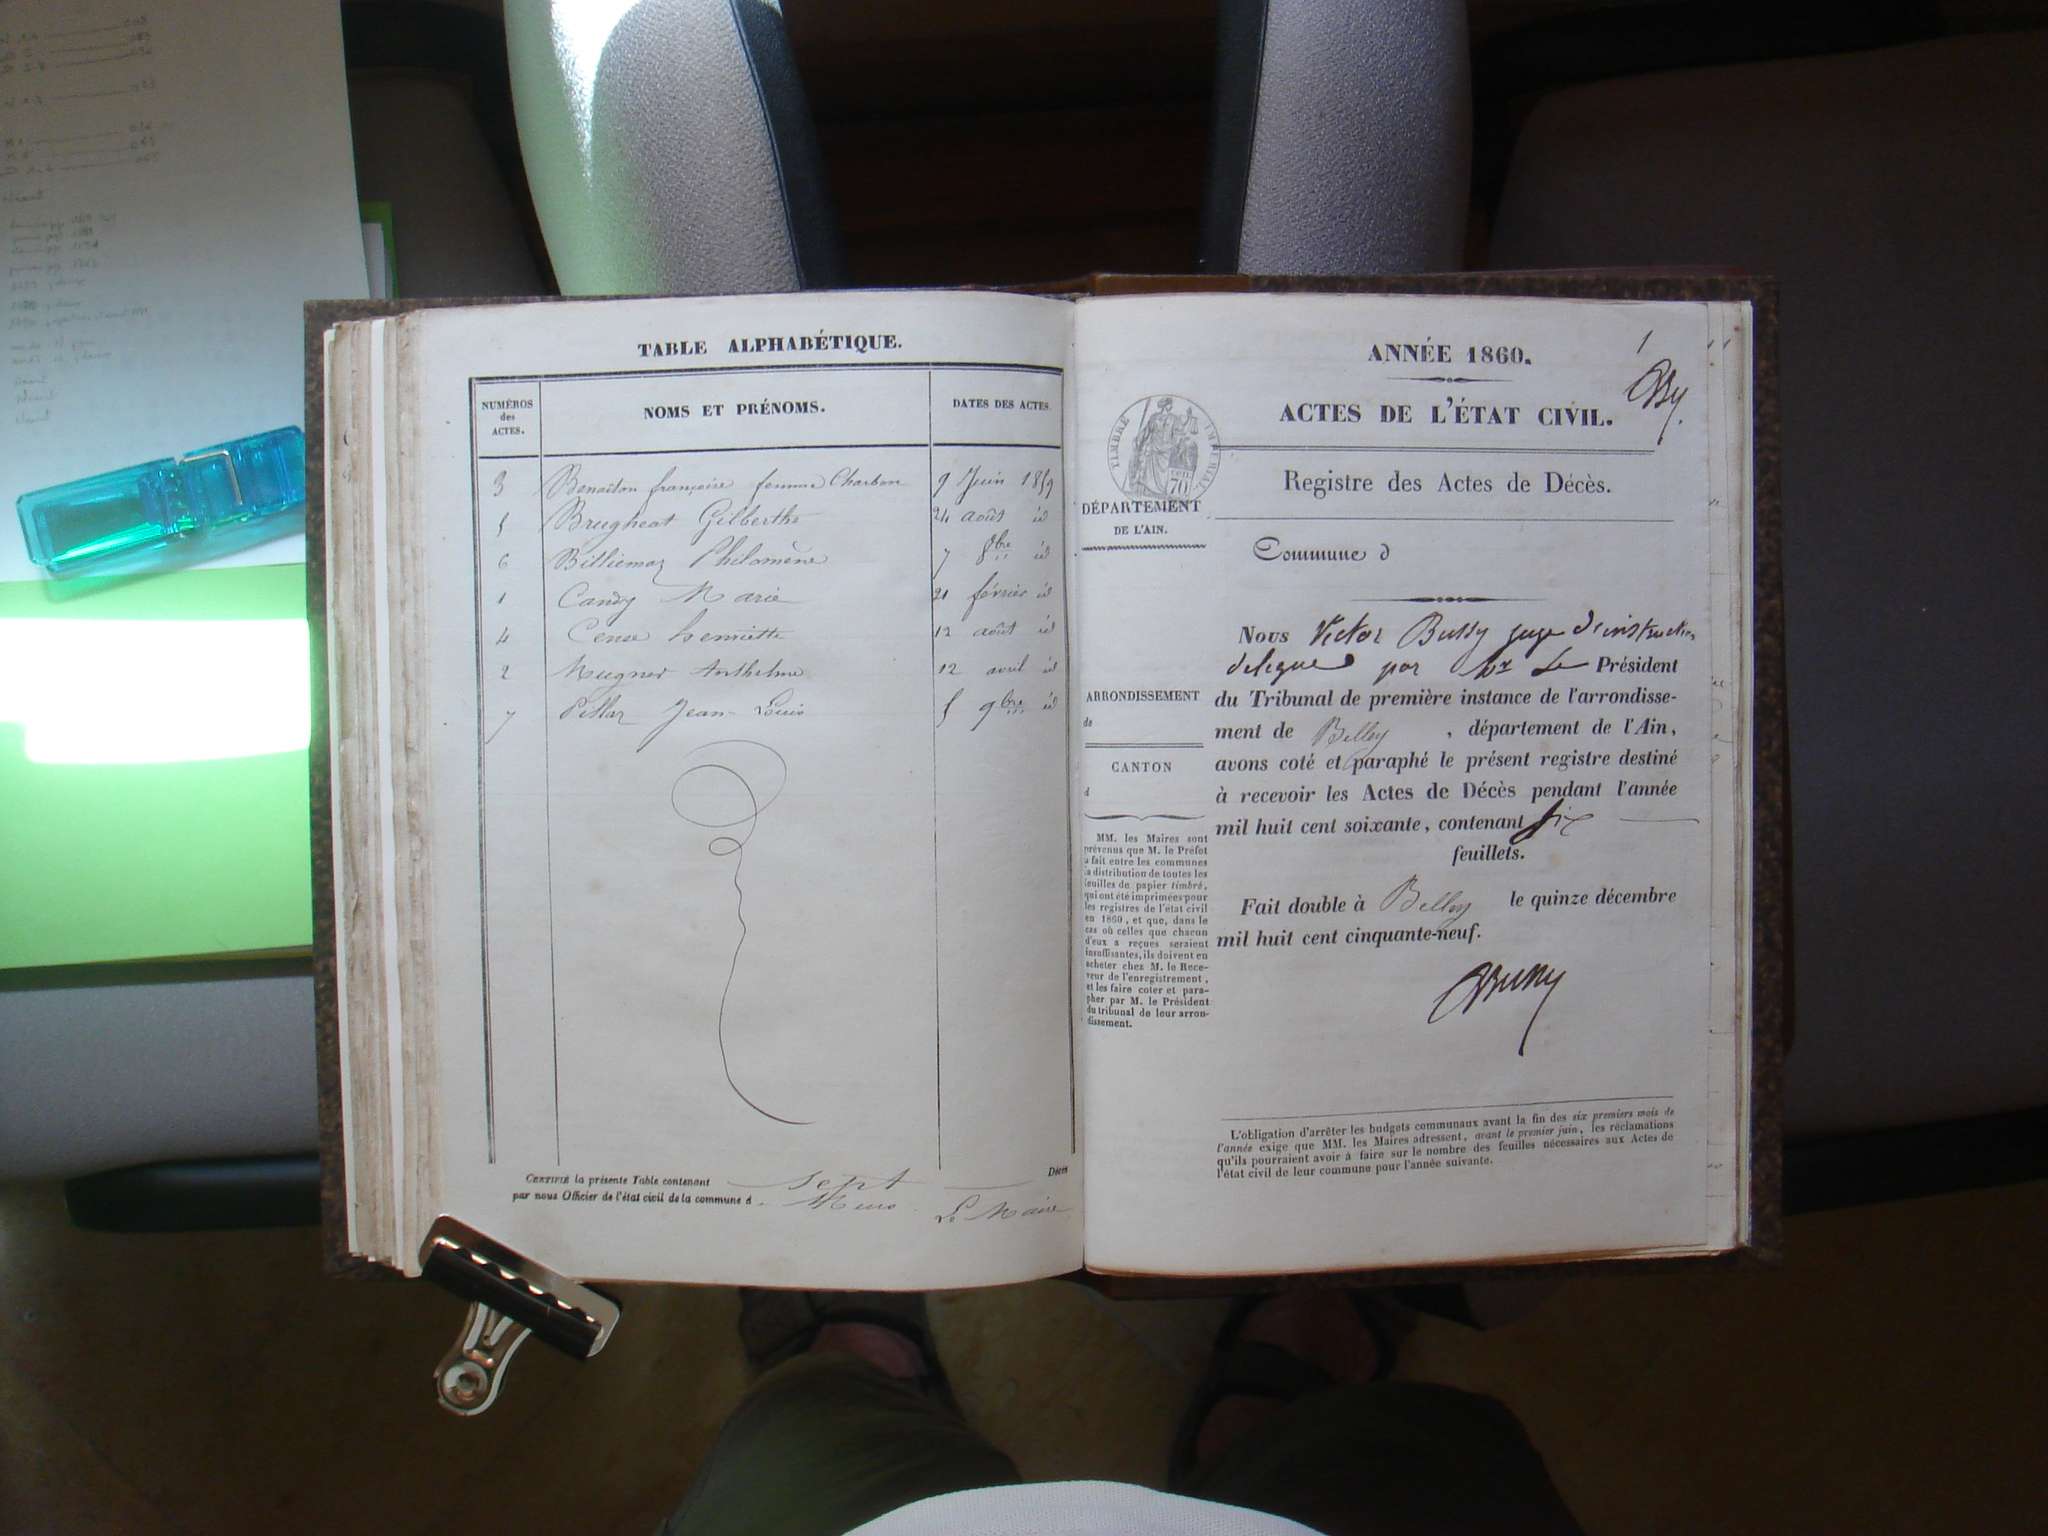 TABLE ALPHABÉTIQUE.
NUMÉROS
des
ACTES.
NOMS ET PRÉNOMS.
DATES DES ACTES.
3 Benoiton françoise femme Charbon 9 Juin 1859
5 Brugheat Gilberthe 24 août id
6 Billiemaz Philomène 7 8bre id
1 Candy Marie 21 février id
4 Cense henriette 12 août id
2 Mugner Anthelme 12 avril id
7 Pillaz Jean-Louis 5 9bre id
CERTIFIÉ la présente Table contenant sept Décès
par nous Officier de l'état civil de la commune d Murs
Le Maire
1
ANNÉE 1860.
ACTES DE L'ÉTAT CIVIL.
TIMBRE IMPÉRIAL
70
Registre des Actes de Décès.
DÉPARTEMENT
DE L'AIN.
Commune d
ARRONDISSEMENT
de
CANTON
d
MM. les Maires sont
prévenus que M. le Préfet
a fait entre les communes
la distribution de toutes les
feuilles de papier timbré,
qui ont été imprimées pour
les registres de l'état civil
en 1860, et que, dans le
cas où celles que chacun
d'eux a reçues seraient
insuffisantes, ils doivent en
acheter chez M. le Rece-
veur de l'enregistrement,
et les faire coter et para-
pher par M. le Président
du tribunal de leur arron-
dissement.
Nous Victor Bussy juge d'instruction
delegue par Mr Le Président
du Tribunal de première instance de l'arrondisse-
ment de Belley, département de l'Ain,
avons coté et paraphé le présent registre destiné
à recevoir les Actes de Décès pendant l'année
mil huit cent soixante, contenant six
feuillets.
Fait double à Belley le quinze décembre
mil huit cent cinquante-neuf.
Bussy
L'obligation d'arrêter les budgets communaux avant la fin des six premiers mois de
l'année exige que MM. les Maires adressent, avant le premier juin, les réclamations
qu'ils pourraient avoir à faire sur le nombre des feuilles nécessaires aux Actes de
l'état civil de leur commune pour l'année suivante.